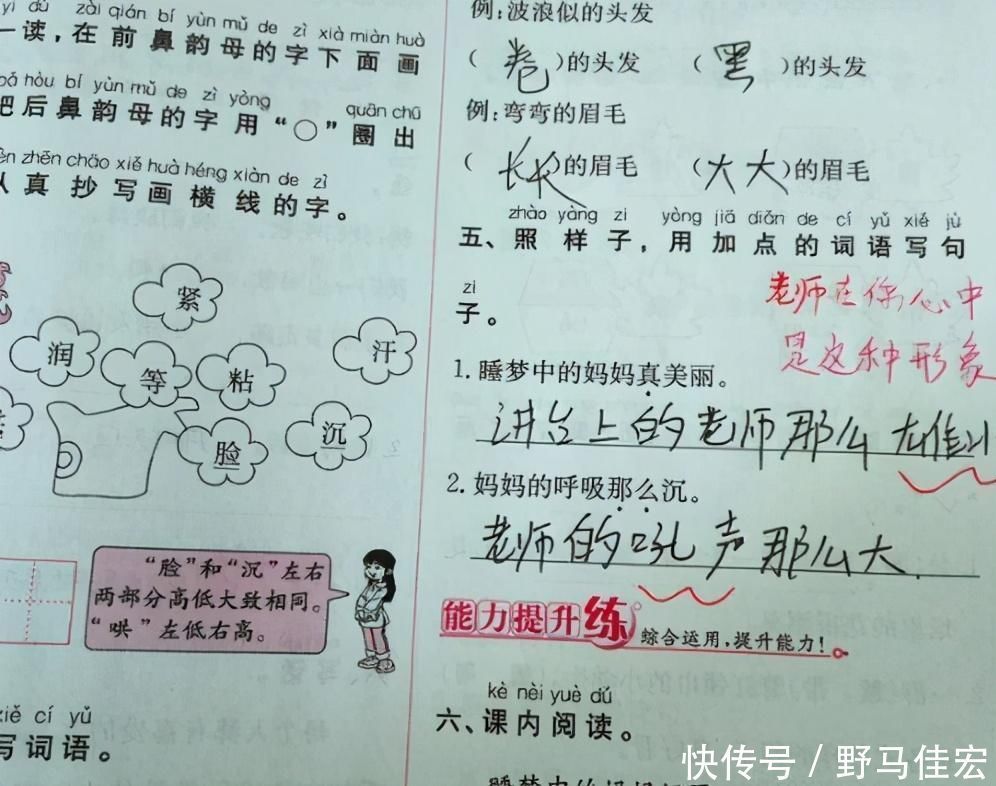 yi dú zài qián bí yùn mǔ de zì xià miàn huà
一读,在前鼻韵母的字下面画
bǎ hòu bí yùn mǔ de zì yòng quān chū
把后鼻韵母的字用“○”圈出
rèn zhēn chāo xiě huà héng xiàn de zì
认真抄写画横线的字。
紧
润
等
粘
汗
脸
沉
“脸”和“沉”左右
两部分高低大致相同。
“哄”左低右高。
xiě cí yǔ
写词语。
例:波浪似的头发
(卷)的头发 (黑)的头发
例:弯弯的眉毛
(长长的眉毛 (大大)的眉毛
zhào yàng zi yòng jiā diǎn de cí yǔ xiě jù
五、照样子,用加点的词语写句
zi
子。
老师在你心中
是这种形象
1. 睡梦中的妈妈真美丽。
讲台上的老师那么
2. 妈妈的呼吸那么沉。
老师的吼声那么大.
能力提升练 综合运用,提升能力!
kè nèi yuè dú
六、课内阅读。
快传号 / 野马佳宏